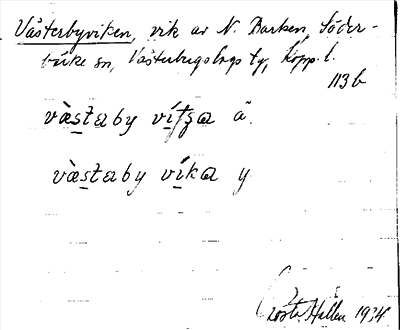 Västerbyviken, vik av N. Barken, Söder-
bärke sn, Västerbergslags tg, Kopp. l.
113 b
væ̀staby ví ä
væ̀staby víka y
Gösta Hallen 1934